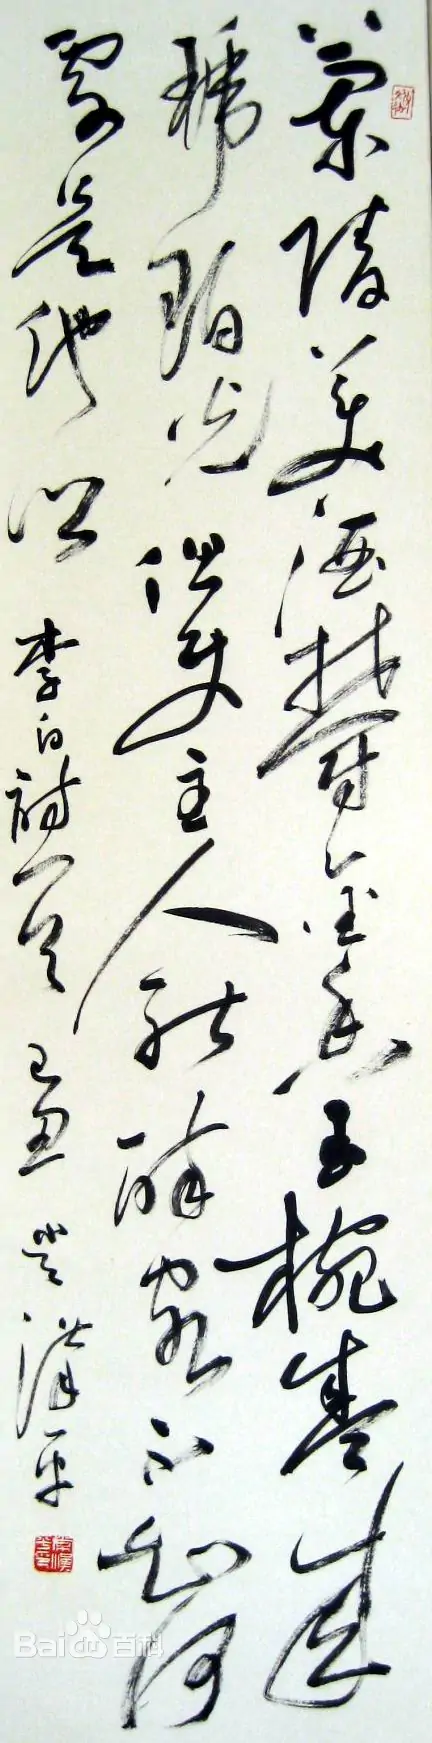 蘭陵美酒鬱金香玉椀盛來
琥珀光但使主人能醉客不知何
處是他鄉 李白詩一首 己丑 漢平
Bai百科